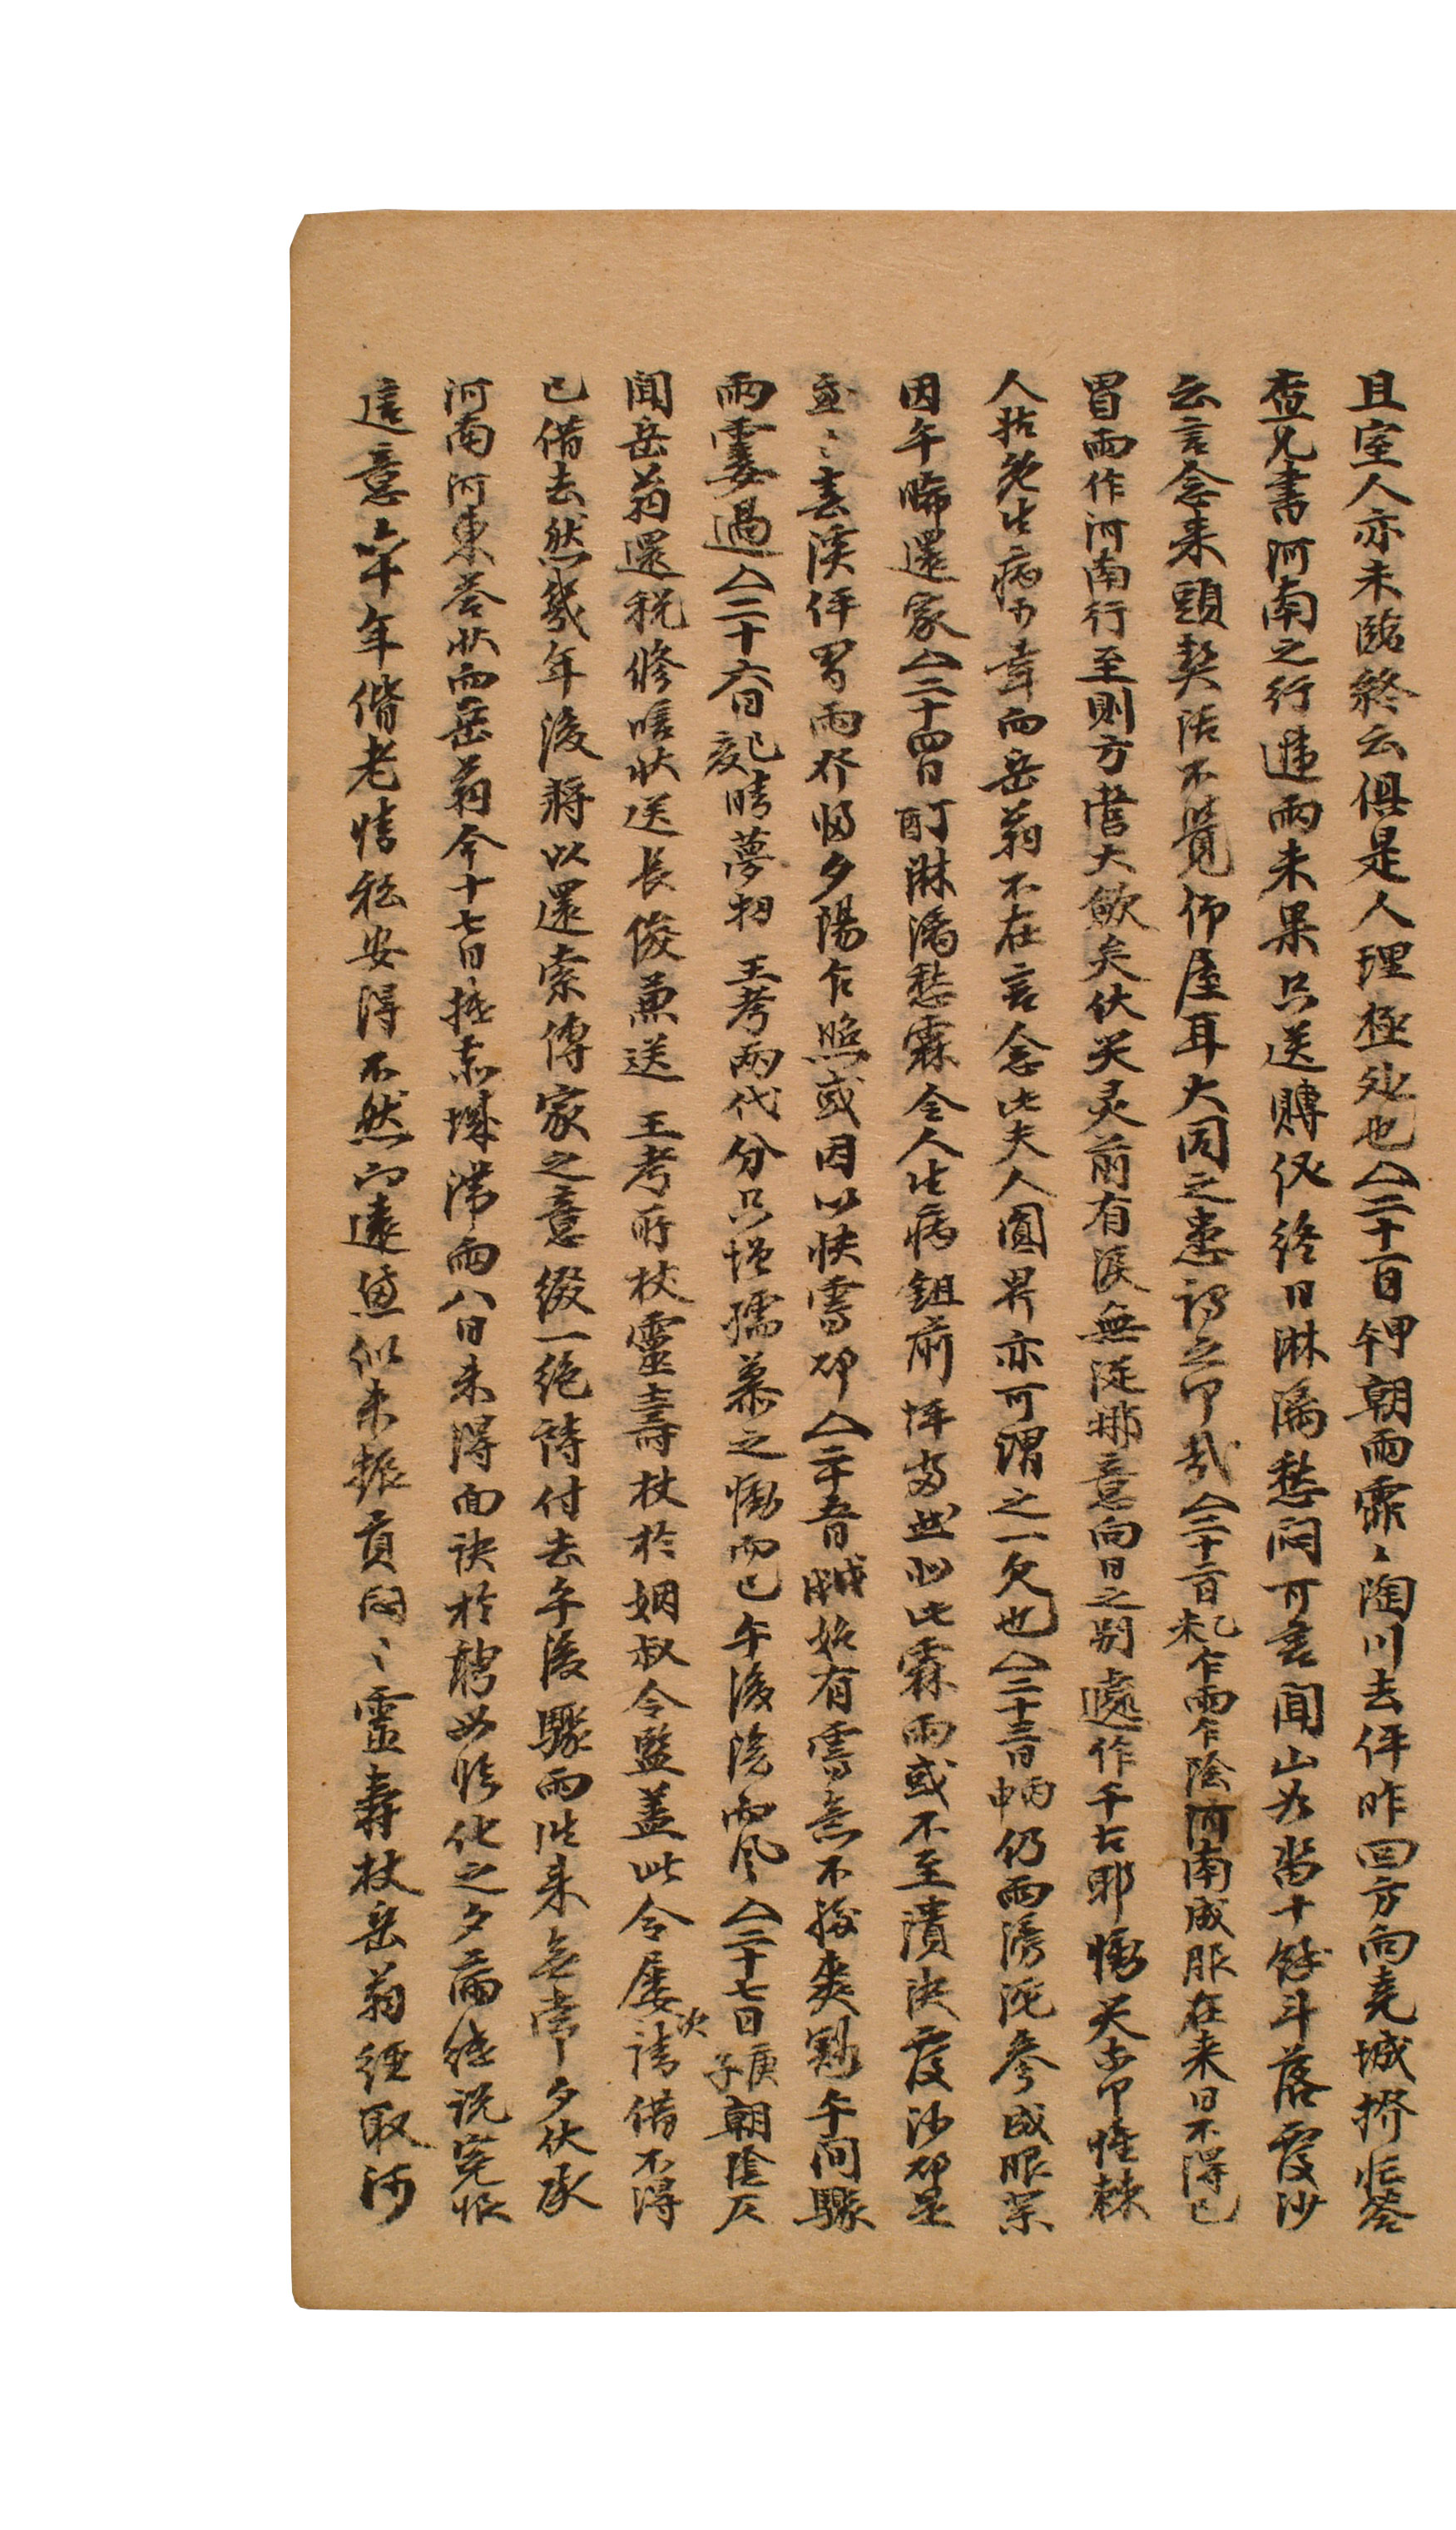 且室人亦未臨終云俱是人理極處也△二十一日甲午朝雨霏〻陶川去伻昨回方向堯城擠忙答
査兄書河南之行違雨未果只送賻仪終日淋漓愁悶可言聞山必當十餘斗落覆沙
云言念来頭契活不覺仰屋耳大同之患謂之何哉△二十二日乙未乍雨乍陰河南成服在来日不得已
冒雨作河南行至則方嘗大斂矣伏哭灵前有淚無從那意向日之别遽作千古耶慟哭而已惟棘
人扶免生病可幸而岳翁不在言念此夫人圓界亦可謂之一欠也△二十三日丙申仍雨滂沱參成服奈
因午晞還家△二十四日丁酉淋漓愁霖令人生病鉏前坪畓此此霖雨或不至潰決覆沙耶是
〻春溪伻冒雨而歸夕陽乍照或因以快霽耶△二十五日戊戌始有霽意不授爽豁午間驟
雨霎過△二十六日己亥晴夢拜 王考兩代分只增孺慕之慟而已午後陰而風△二十七日庚子朝陰仄
聞岳翁還税修唁狀送長俊兼送 王考所杖靈壽杖於姻叔令監盖此令屢次請借不得
已借去然幾年後將以還索傳家之意綴一絶詩付去午後驟雨往来無常夕伏承
河南河東答狀而岳翁今十七日抵赤城滯雨八日未得面訣於聘母臨化之夕而備説寃恨
這意六十年偕老情私安得不然而遠憊似未振貢悶〻靈壽杖岳翁經取河